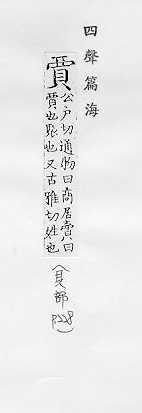 四聲篇海
賈
公戶切通物曰商居賣曰
賈也賬也又古雅切姓也
(貝部
P228)